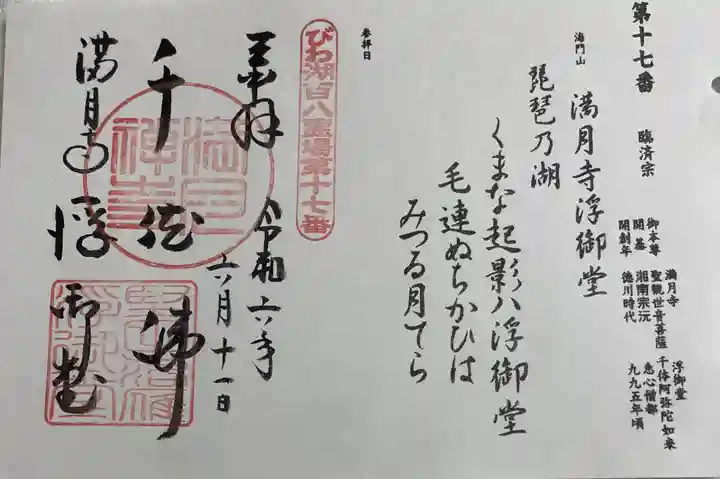 第十七番
臨済宗
御本尊
開基
開創年
満月寺
聖観世音菩薩
湘南宗沅
徳川時代
浮御堂
千体阿弥陀如来
恵心僧都
九九五年頃
海門山
満月寺浮御堂
琵琶乃湖
くまな起影八浮御堂
毛連ぬちかひは
みつる月てら
参拝日
びわ湖百八霊場第十七番
奉拝
令和六年
六月十一日
千體佛
満月寺浮御堂